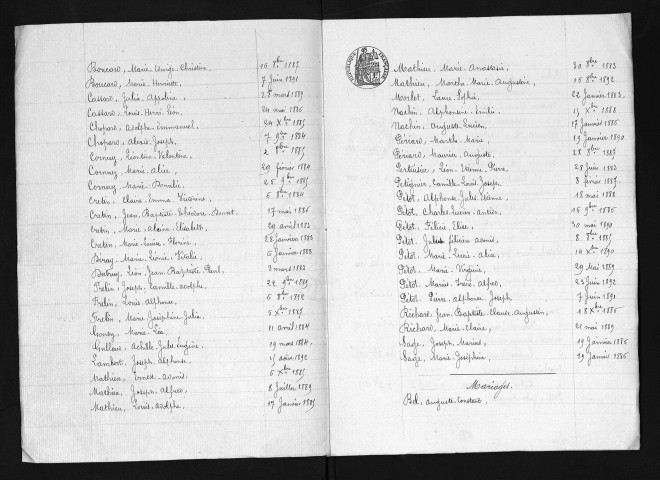 Boucard, Marie Edwige Christine, 16 8bre 1887
Boucard, Marie Henriette 7 Juin 1891
Cassard, Julie Appoline, 28 mars 1889
Cassard, Louis Henri Léon, 24 mai 1886
Chopard, Adolphe Emmanuel, 24 Xbre 1885
Chopard, Alexis Joseph, 7 9bre 1884
Corneux, Léontine Valentine, 2 8bre 1885
Corneux, Marie Alice, 29 février 1884
Corneux, Marie 25 9bre 1885
Cretin, Claire Emma 6 8bre 1884
Cretin, Jean Baptiste Théodore 17 mai 1886
Cretin, Marie Elisabeth, 29 avril 1883
Cretin, Marie Louise 28 Janvier 1883
Marie Léonie 6 Janvier 1883
Léon Jean Baptiste Paul, 3 mars 1882
Frelin, Joseph Camille Adolphe, 22 9bre 1889
Frelin, Louis Alphonse, 6 8bre 1892
Frelin, Marie Joséphine Julie, 5 Xbre 1885
Marie Léa, 11 avril 1884
Achille Jules Eugène, 19 mars 1884
Lambert, Joseph Alphonse, 15 août 1892
Mathieu, Ernest 6 Xbre 1885
Mathieu, Joseph Alfred, 8 Juillet 1889
Mathieu, Louis Adolphe, 17 Janvier 1885
RÉPUBLIQUE FRANÇAISE
Mathieu, Marie Anastasie, 30 8bre 1883
Mathieu, Marthe Marie Augustine, 16 8bre 1892
Laure Sophie, 22 Janvier 1883
Nachin, Alphonsine Emilie 15 Xbre 1888
Nachin, Auguste 17 Janvier 1886
Périard, Marthe Marie, 19 Janvier 1890
Périard, Maurice Auguste, 28 8bre 1885
Léon Etienne Pierre, 28 Juin 1882
Petignier, Camille Louis Joseph, 8 février 1887
Petot, Alphonse Jules Etienne, 18 mai 1888
Petot, Charles Lucien 16 9bre 1886
Petot, Félicie Elise, 30 mai 1890
Petot, Jules 8 8bre 1885
Petot, Marie Lucie Alice, 14 Xbre 1890
Petot, Marie Virginie, 29 Mai 1889
Petot, Marius Alfred, 23 Juin 1892
Petot, Pierre Alphonse Joseph 7 Juin 1891
Richard, Jean Baptiste Claude Augustin, 18 Xbre 1885
Richard, Marie Claire, 21 mai 1889
Sage, Joseph Marius, 19 Janvier 1886
Sage, Marie Joséphine, 19 Janvier 1886
Mariages.
Bel, Auguste Constant,